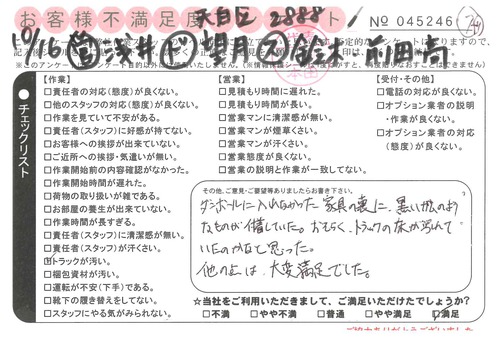 お客様不満足度
天白区 2888
No 045246
10/16 営 浅井 ド 望月 鈴木 前田高
※このアンケート
チェックリスト
【作業】
□責任者の対応(態度)が良くない。
□他のスタッフの対応(態度)が良くない。
□作業を見ていて不安がある。
□責任者(スタッフ)に好感が持てない。
□お客様への挨拶が出来ていない。
□ご近所への挨拶・気遣いが無い。
□作業開始前の内容確認がなかった。
□作業開始時間が遅れた。
□荷物の取り扱いが雑である。
□お部屋の養生が出来ていない。
□作業時間が長すぎる。
□責任者(スタッフ)に清潔感が無い。
□責任者(スタッフ)が汗くさい。
□トラックが汚い。
□梱包資材が汚い。
□運転が安車(下手)である。
□靴下の履き替えをしてない。
□スタッフにやる気がみられない。
【営業】
□見積もりに遅れた。
□見積もり時間が長い。
□営業マンに清潔感が無い。
□営業マンが煙草くさい。
□営業マンが汗くさい。
□営業態度が良くない。
□営業の説明と作業が一致してない。
【受付・その他】
□電話の対応が良くない。
□オプション業者の説明
・作業が良くない。
□オプション業者の対応
(態度)が良くない。
その他、ご意見・ご要望等ありましたらお書き下さい。
ダンボールに入れなかった家具の裏に、黒い
なものが付着していた。おそらく、トラックの床が汚れて
いたのかなと思った。
他の点は、大変満足でした。
☆当社をご利用いただきまして、ご満足いただけたでしょうか?
□不満 □やや不満 □普通 □やや満足 □満足